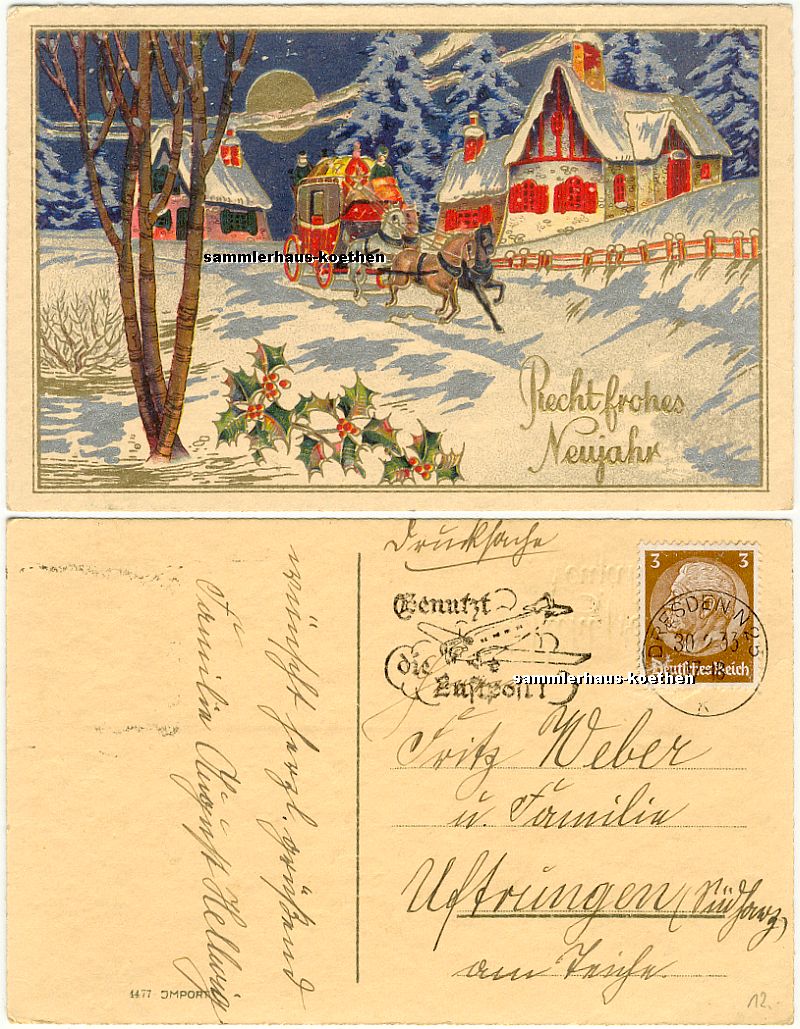 sammlerhaus-koethen
Recht frohes
Neujahr
Drucksache
Benutzt
die
Luftpost!
3 3
Deutsches Reich
DRESDEN N 25
sammlerhaus-koethen
Fritz Weber
u. Familie
Uftrungen (Südharz)
am Teiche.
wünscht herzl. grüßend
Familie August Hellwig
1477 IMPORT
12.